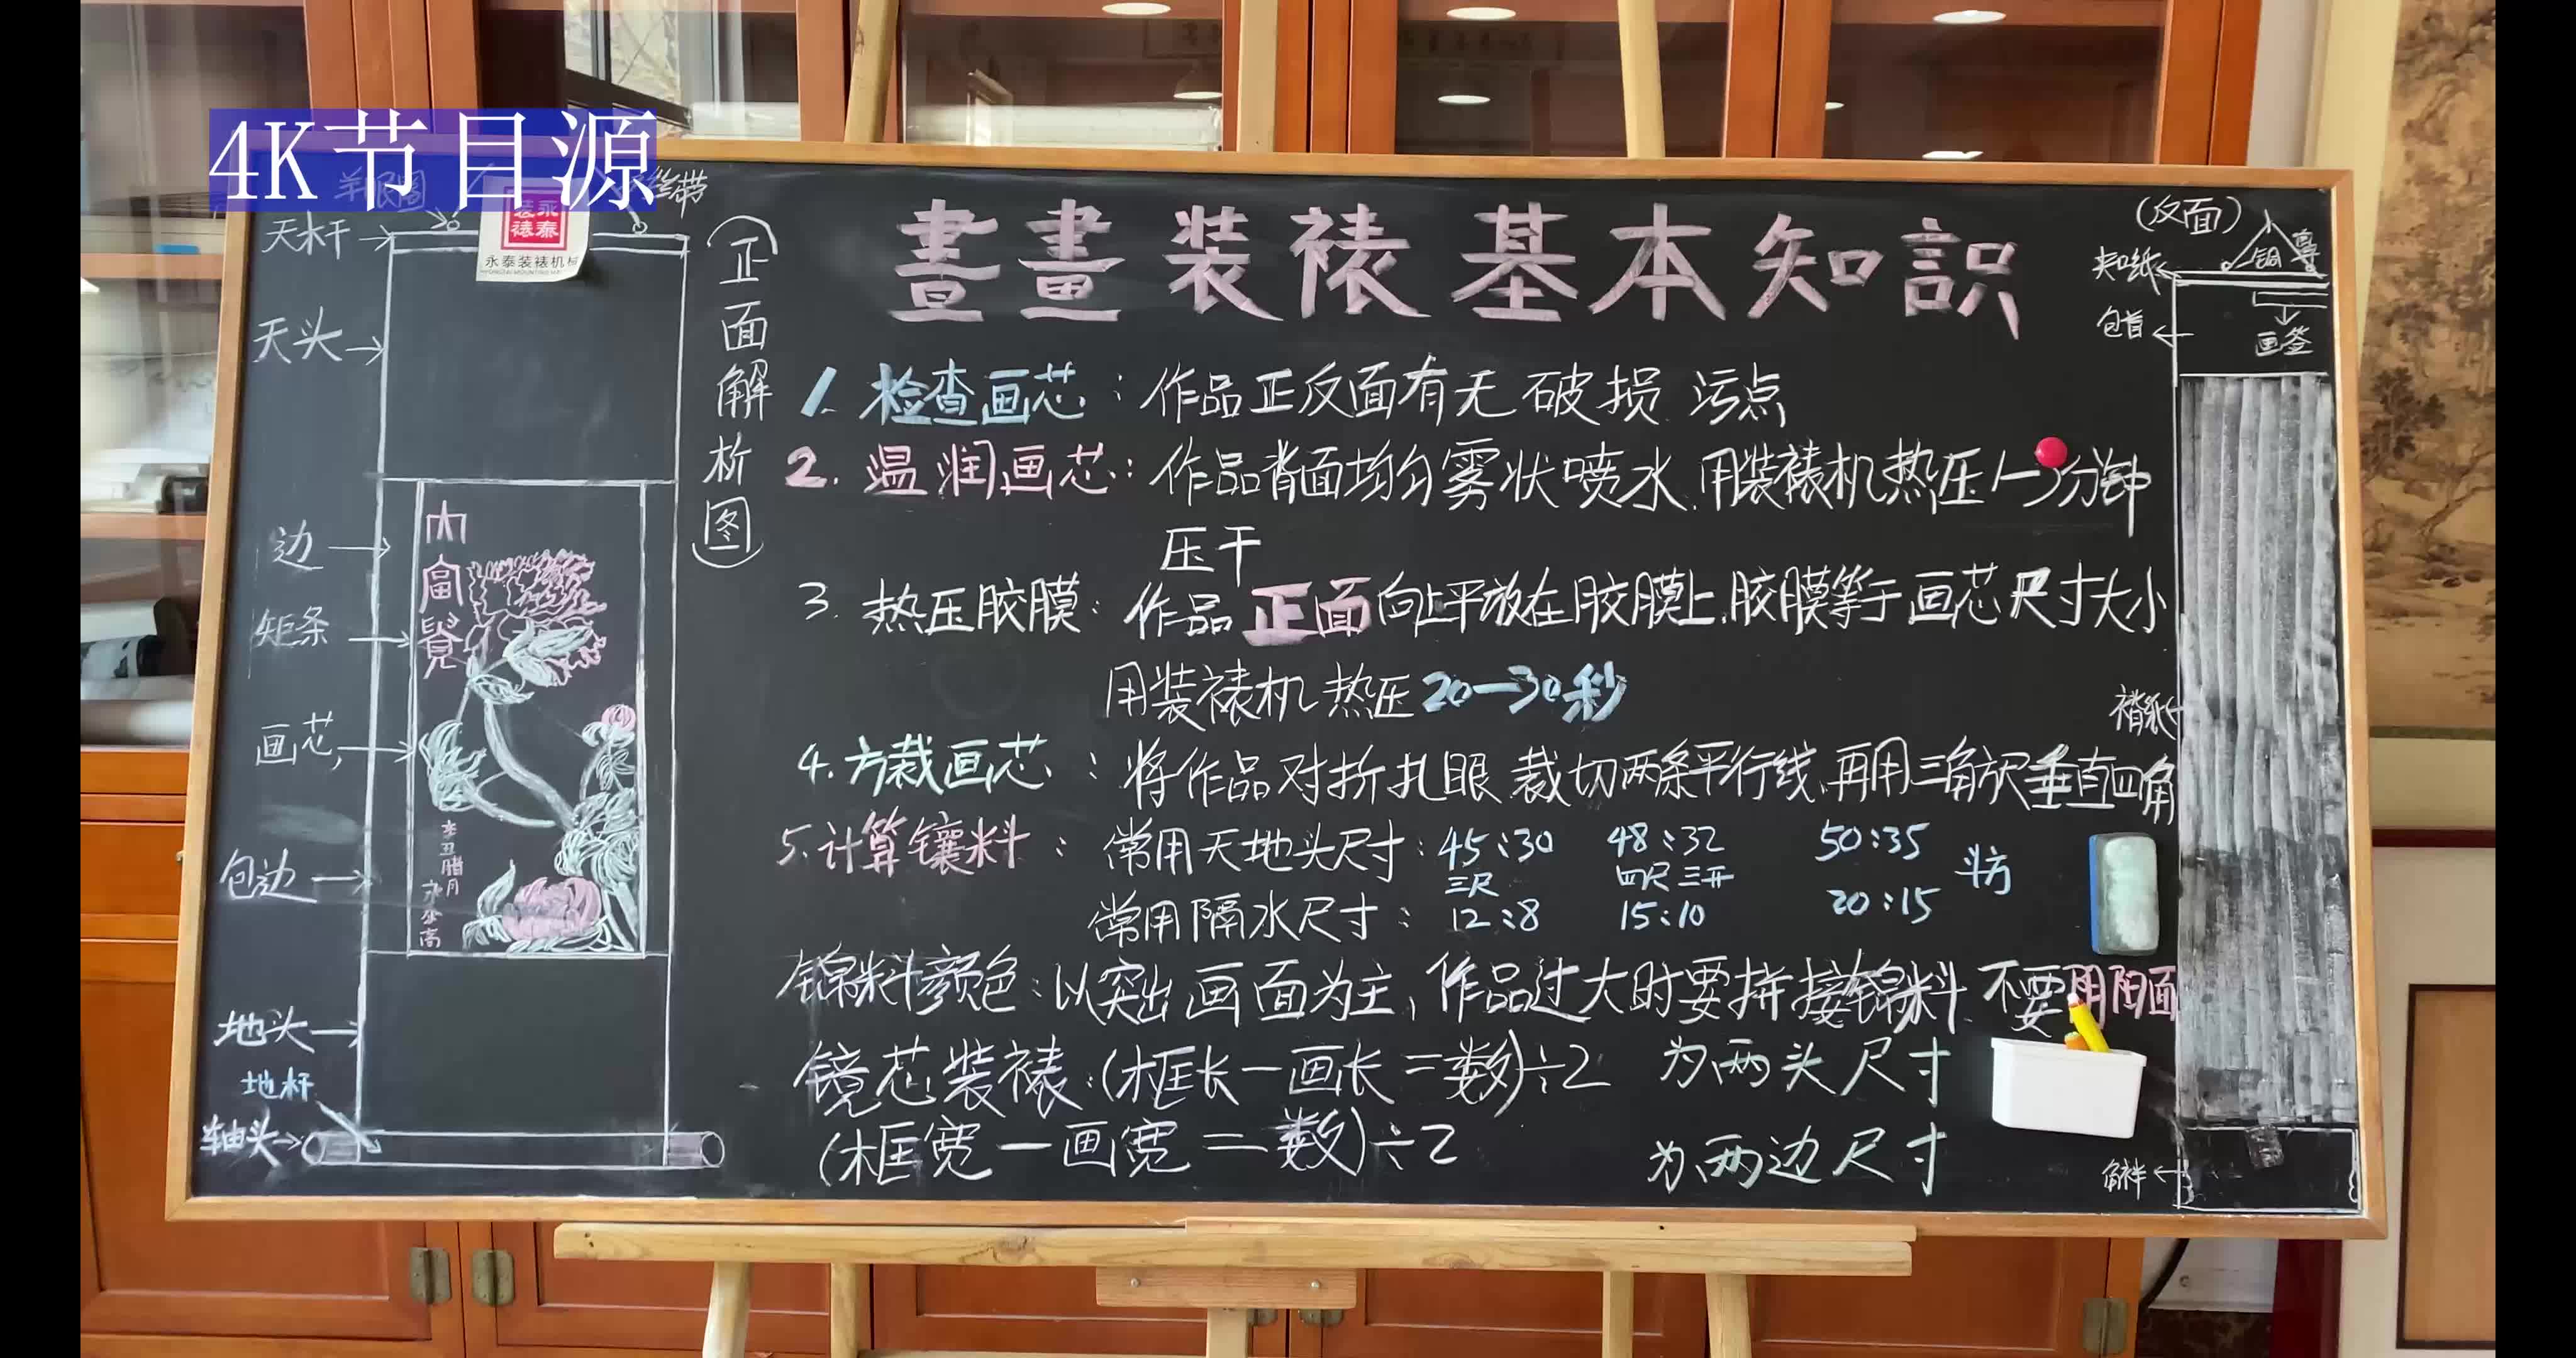 4K节目源
羊眼圈
丝带
天木干
装永
裱泰
永泰装裱机械
天头
边
矩条
画芯
包边
地头
地杆
轴头
(正面解析图)
大富贵
辛丑腊月
書畫装裱基本知識
1. 检查画芯:作品正反面有无破损 污点
2. 温润画芯:作品背面均匀雾状喷水.用装裱机热压1-3分钟
压干
3. 热压胶膜:作品正面向上平放在胶膜上,胶膜等于画芯尺寸大小
用装裱机热压20-30秒
4. 方裁画芯:将作品对折扎眼 裁切两条平行线,再用三角尺垂直四角
5. 计算镶料:常用天地头尺寸:45:30 48:32 50:35 斗方
三尺 四尺三开
常用隔水尺寸:12:8 15:10 20:15
锦料颜色:以突出画面为主,作品过大时要拼接锦料 不要阴阳面
镜芯装裱:(框长-画长=数)÷2 为两头尺寸
(框宽-画宽=数)÷2 为两边尺寸
(反面)
夹口纸
包首
画签
褙纸
角袢